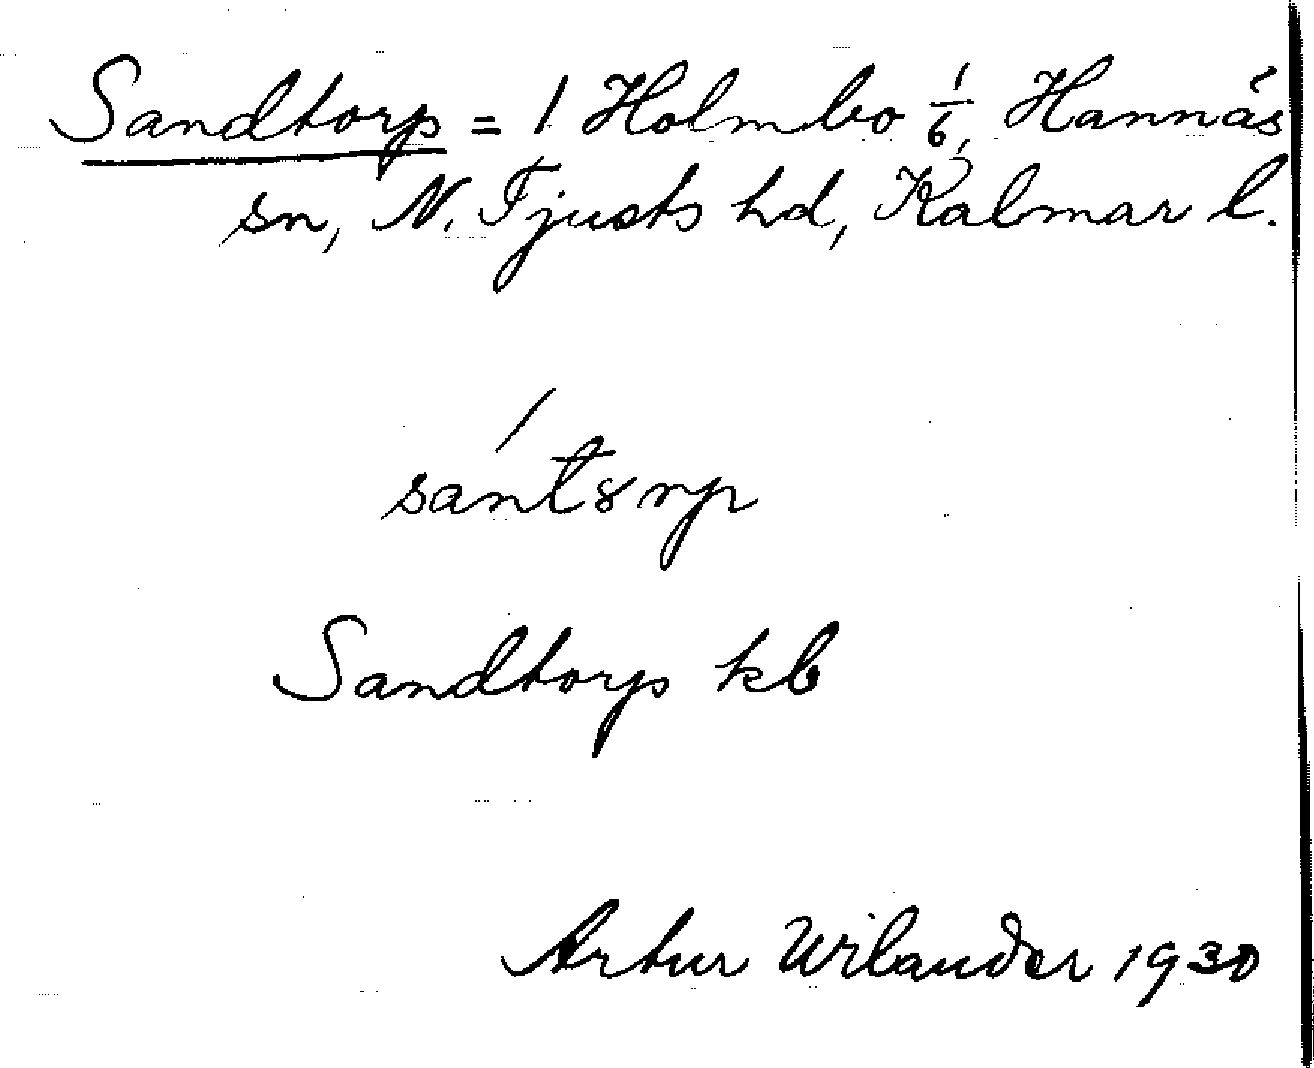 Sandtorp = 1 Holmbo 1/6, Hannäs
sn, N. Tjusts hd, Kalmar l.
Sandtorp kb
Artur Wilander 1930